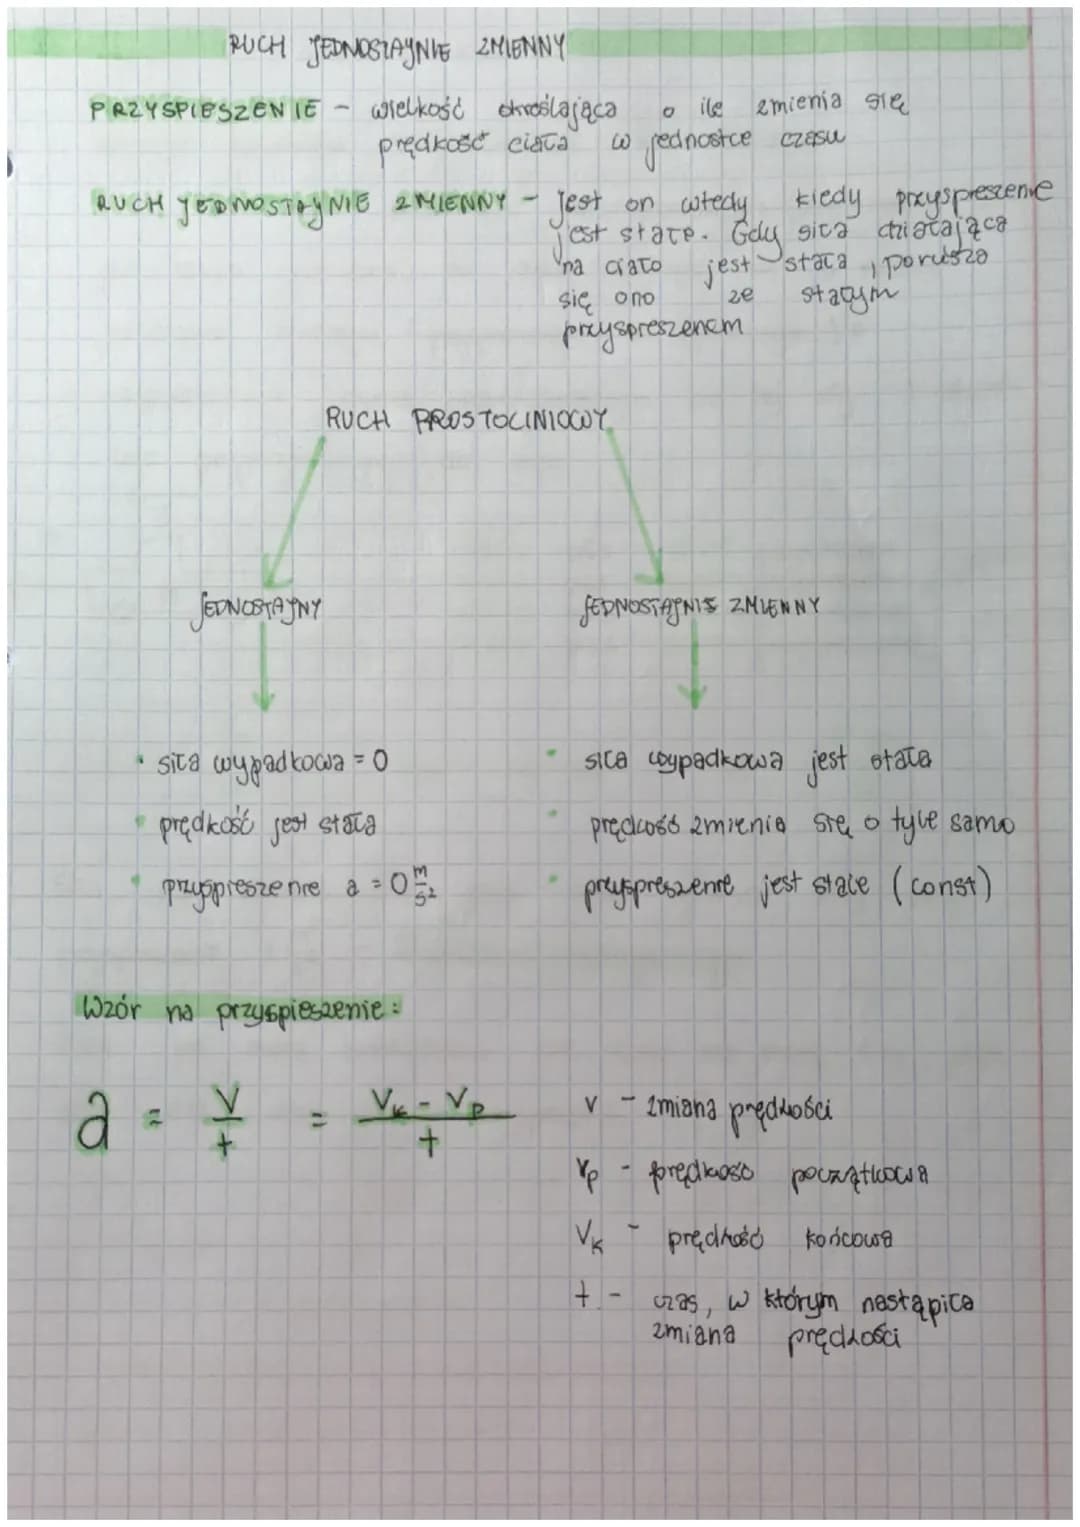 RUCH JEDNOSTAJNIE ZMIENNY
PRZYSPIESZENIE - wielkość określająca o ile zmienia się
prędkość ciała w jednostce czasu
RUCH JEDNOSTAJNIE ZMIENNY - jest on wtedy kiedy przyspieszenie
jest stałe. Gdy siła działająca
na ciało jest stała, porusza
się ono ze stałym
przyspieszenem
RUCH PROSTOLINIOWY
JEDNOSTAJNY
JEDNOSTAJNIE ZMIENNY
• siła wypadkowa = 0
• prędkość jest stała
• przyspieszenie a = 0 m/s²
• siła wypadkowa jest stała
• prędkość zmienia się o tyle samo
• przyspieszenie jest stałe (const)
Wzór na przyspieszenie:
a = v/t = (Vk - Vp)/t
v - zmiana prędkości
Vp - prędkość początkowa
Vk - prędkość końcowa
t - czas, w którym nastąpiła
zmiana prędkości